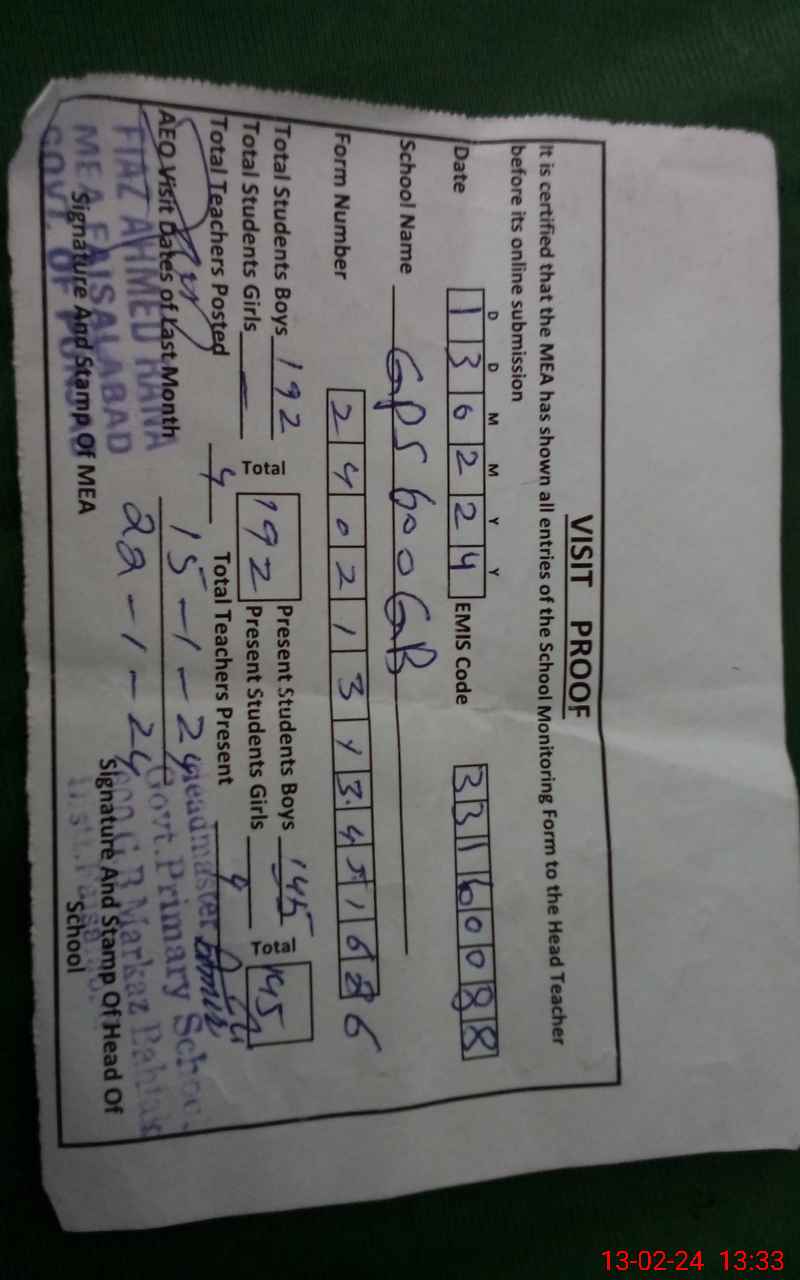 VISIT PROOF
It is certified that the MEA has shown all entries of the School Monitoring Form to the Head Teacher
before its online submission
D D M M Y Y
Date 130224 EMIS Code 33160088
School Name GPS 600 GB
Form Number
Total Students Boys 192 Present Students Boys 145
Total 192 Total 145
Total Students Girls – Present Students Girls
Total Teachers Posted 4 Total Teachers Present
AEO Visit Dates of Last Month 15-1-24
22-1-24
FIAZ AHMED RANA
MEA FAISALABAD
GOVT. OF PUNJAB
Signature And Stamp Of MEA
Headmaster
Govt. Primary School
G B Markaz
Signature And Stamp Of Head Of
School
13-02-24 13:33